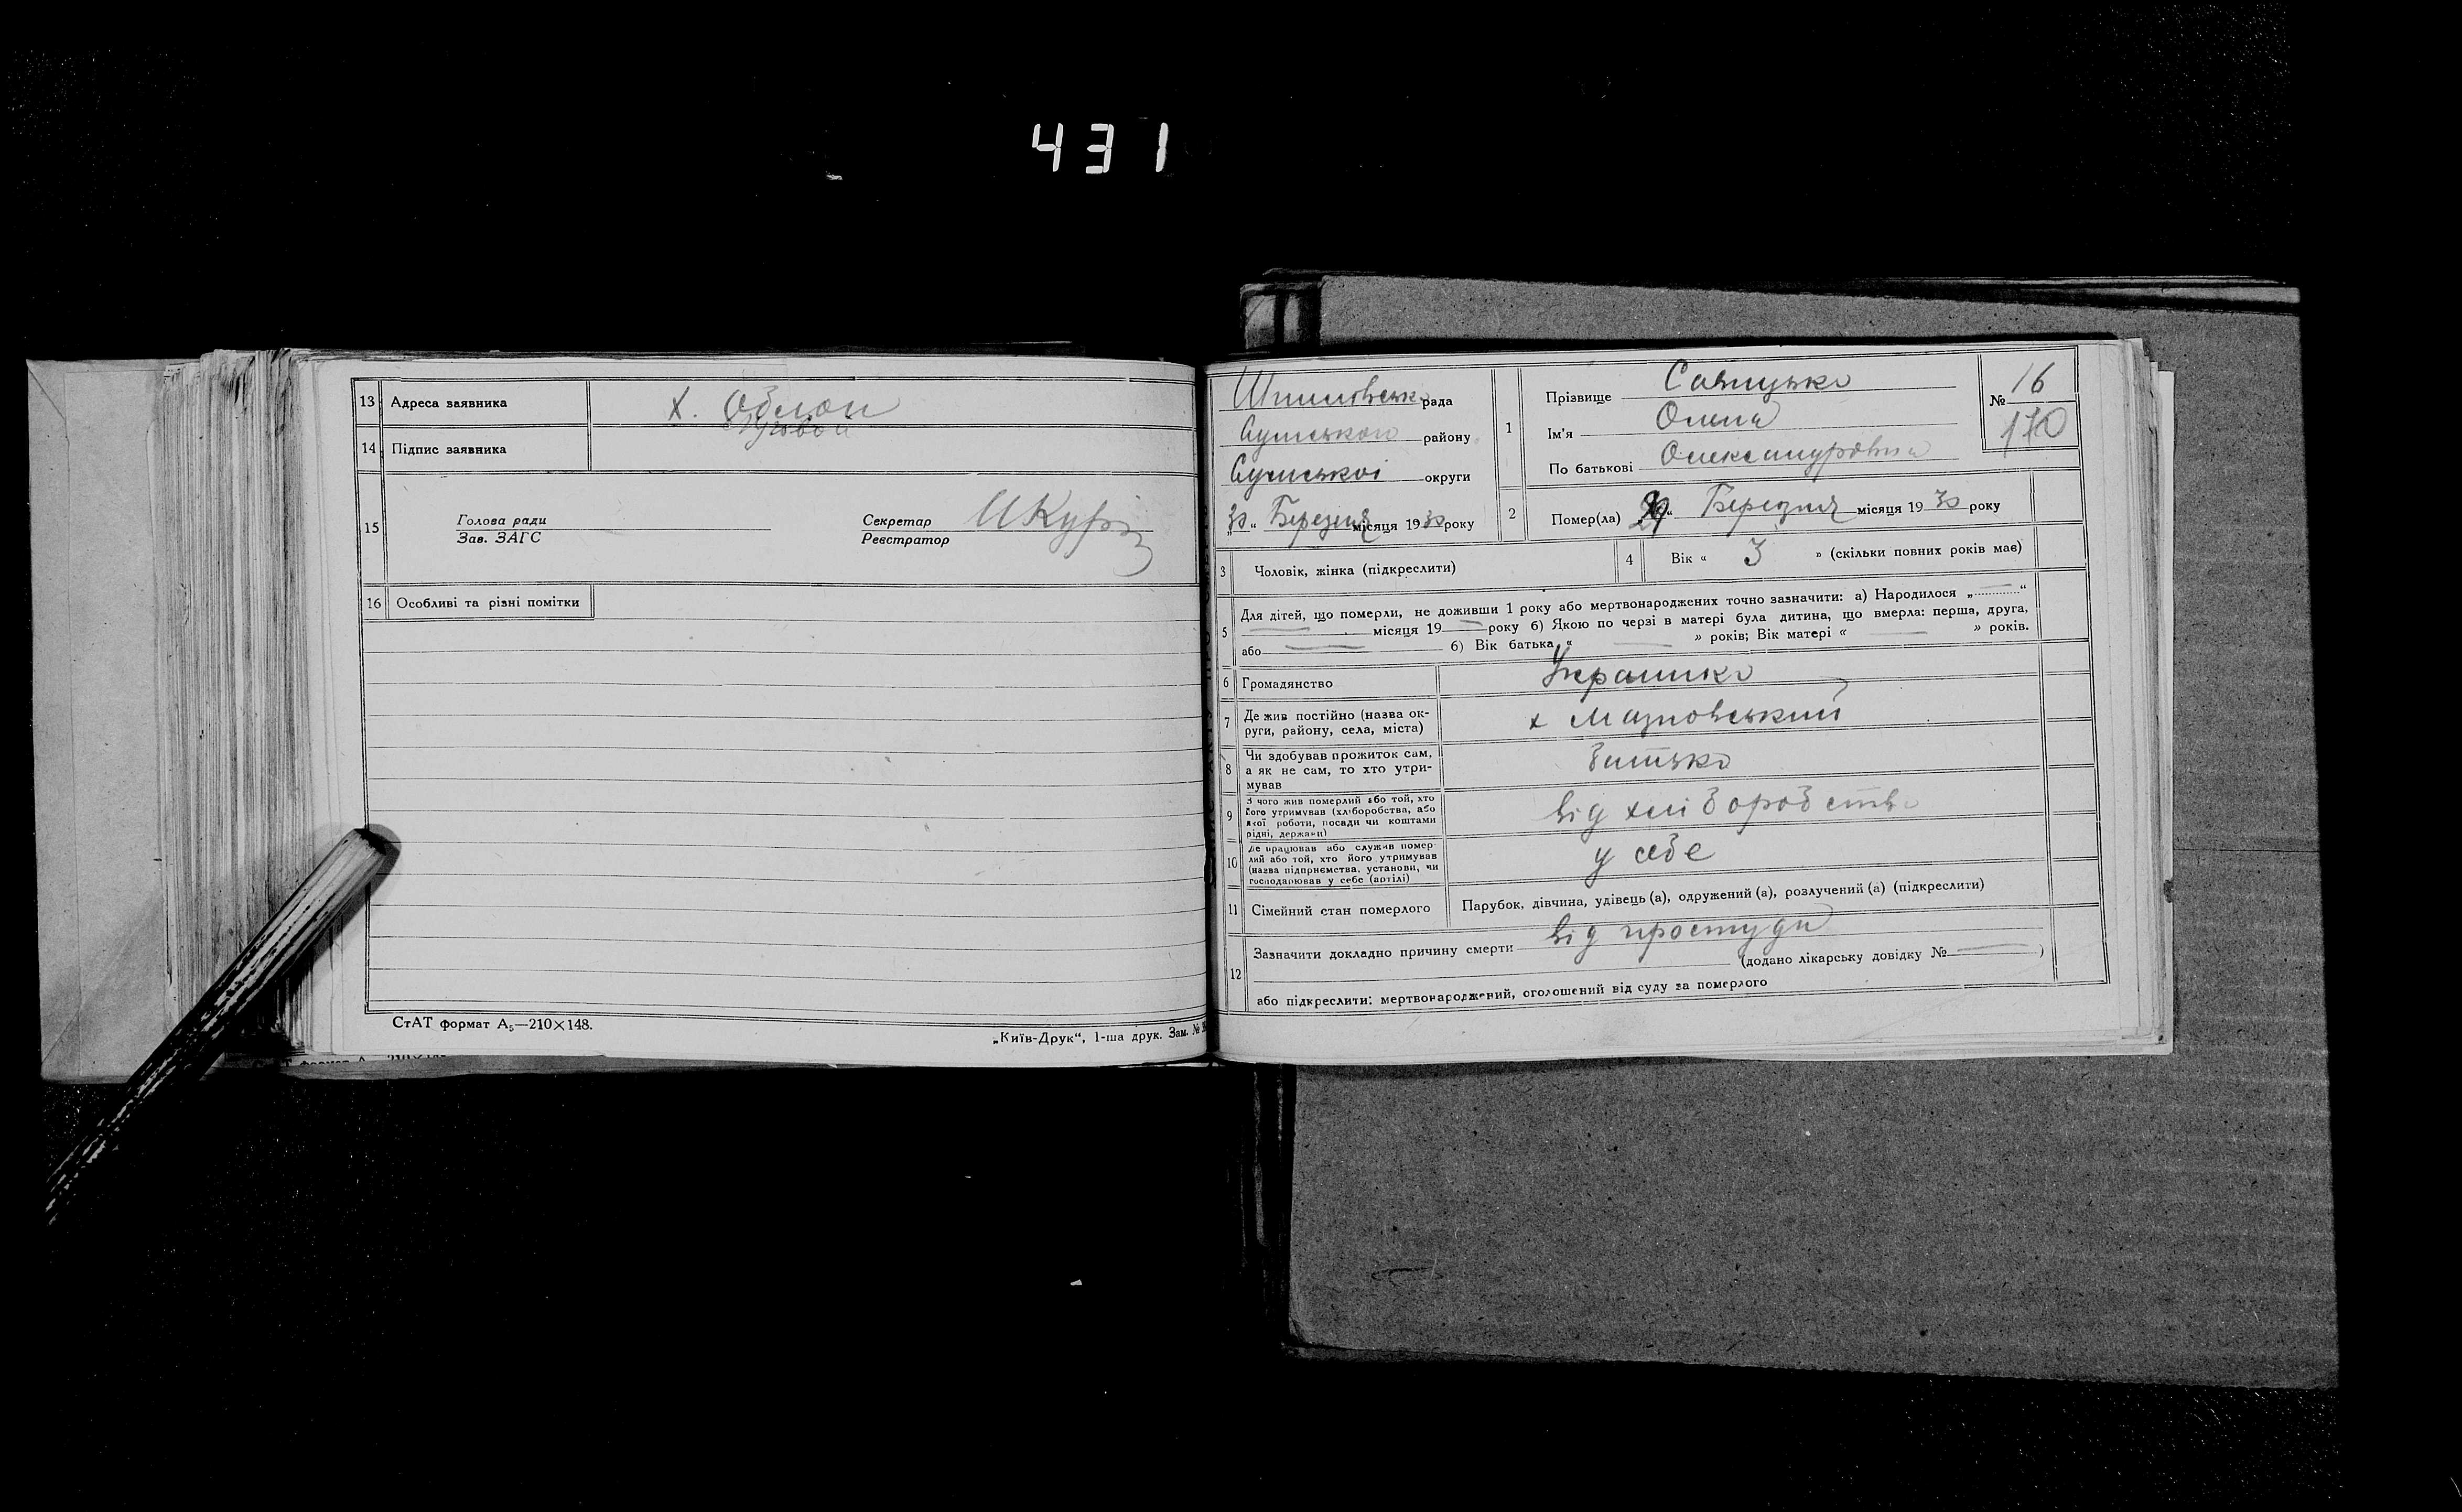 431
13 Адреса заявника х. Облои
14 Підпис заявника
15 Голова ради
Зав. ЗАГС
Секретар
Реєстратор
16 Особливі та різні помітки
СтАТ формат А₅—210×148.
„Київ-Друк“, 1-ша друк. Зам. №
рада
Сумського району
Сумської округи
„30“ Березня місяця 1930 року
1 Прізвище
Ім'я Олена
По батькові Олександровна
№ 16
170
2 Помер(ла) „29“ Березня місяця 1930 року
3 Чоловік, жінка (підкреслити)
4 Вік « 3 » (скільки повних років має)
5 Для дітей, що померли, не доживши 1 року або мертвонароджених точно зазначити: а) Народилося „ “
місяця 19 року б) Якою по черзі в матері була дитина, що вмерла: перша, друга,
або б) Вік батька „ “ » років; Вік матері « » років.
6 Громадянство Українка
7 Де жив постійно (назва ок-
руги, району, села, міста)
х
8 Чи здобував прожиток сам,
а як не сам, то хто утри-
мував
батько
9 З чого жив померлий або той, хто
його утримував (хліборобства, або
якої роботи, посади чи коштами
рідні, держави)
від хліборобства
10 Де працював або служив помер-
лий або той, хто його утримував
(назва підприємства, установи, чи
господарював у себе (артілі)
у себе
11 Сімейний стан померлого Парубок, дівчина, удівець (а), одружений (а), розлучений (а) (підкреслити)
12 Зазначити докладно причину смерти від простуди
(додано лікарську довідку № )
або підкреслити: мертвонароджений, оголошений від суду за померлого